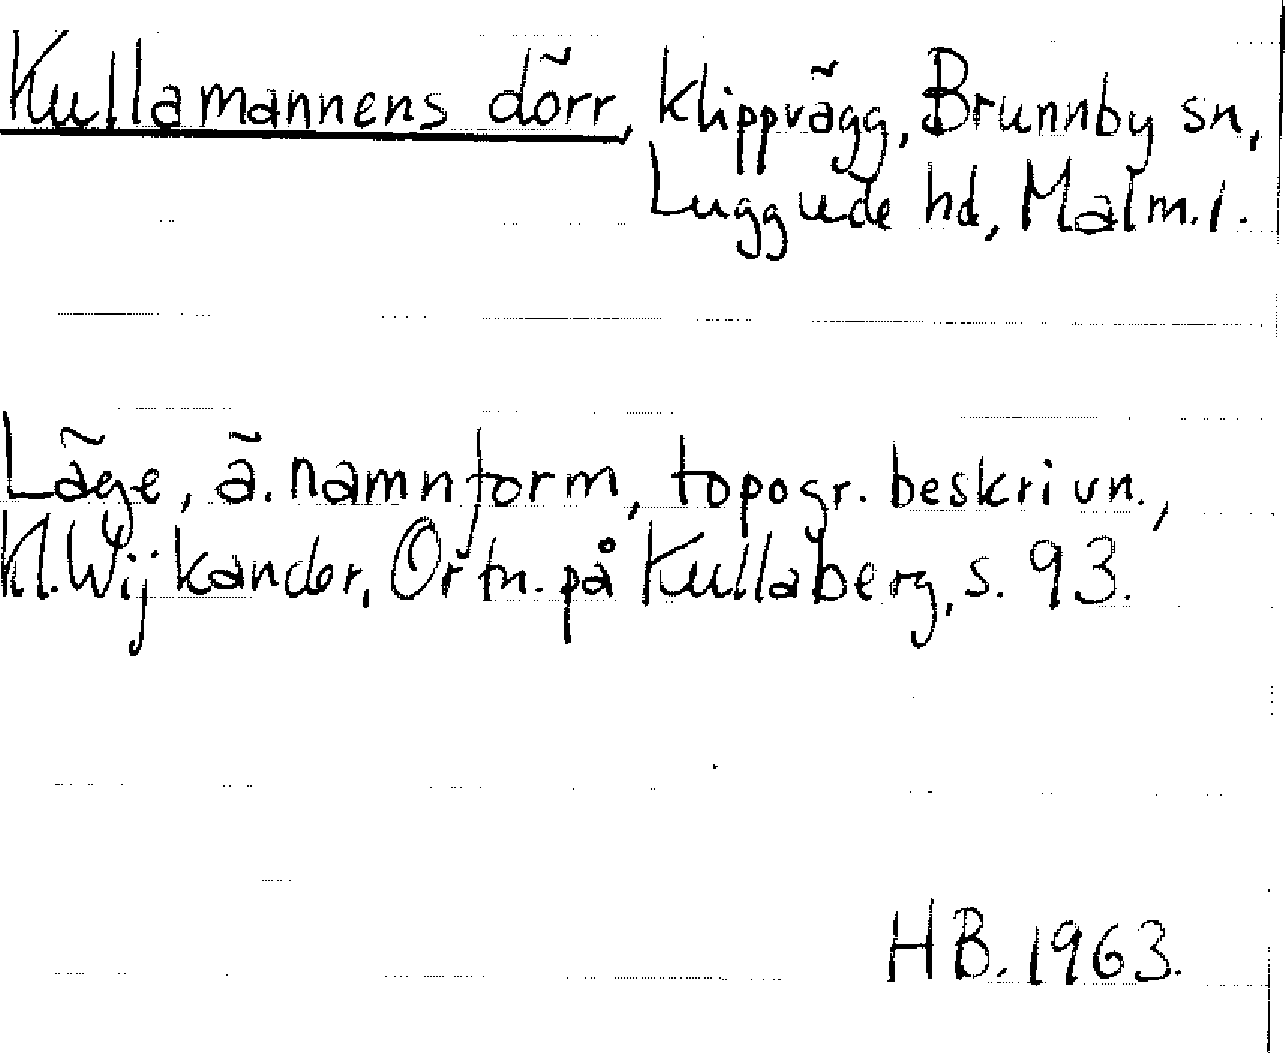 Kullamannens dörr, klippvägg, Brunnby sn,
Luggude hd, Malm.l.
Läge, ä. namnform, topogr. beskrivn.,
Kl. Wijkander, Ortn. på Kullaberg, s. 93.
HB. 1963.